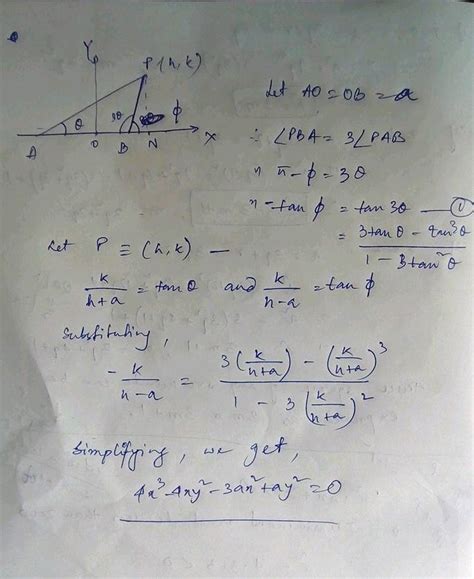 Y
P(h,k)
θ 3θ φ
A O B N X
Let AO = OB = a
∵ ∠PBA = 3∠PAB
" π - φ = 3θ
" -tan φ = tan 3θ — ①
= \frac{3tan θ - tan³θ}{1 - 3tan²θ}
Let P ≡ (h,k) —
\frac{k}{h+a} = tan θ and \frac{k}{h-a} = tan φ
Substituting,
-\frac{k}{h-a} = \frac{3(\frac{k}{h+a}) - (\frac{k}{h+a})^3}{1 - 3(\frac{k}{h+a})^2}
Simplifying, we get,
4x³-4xy²-3ax²+ay²=0